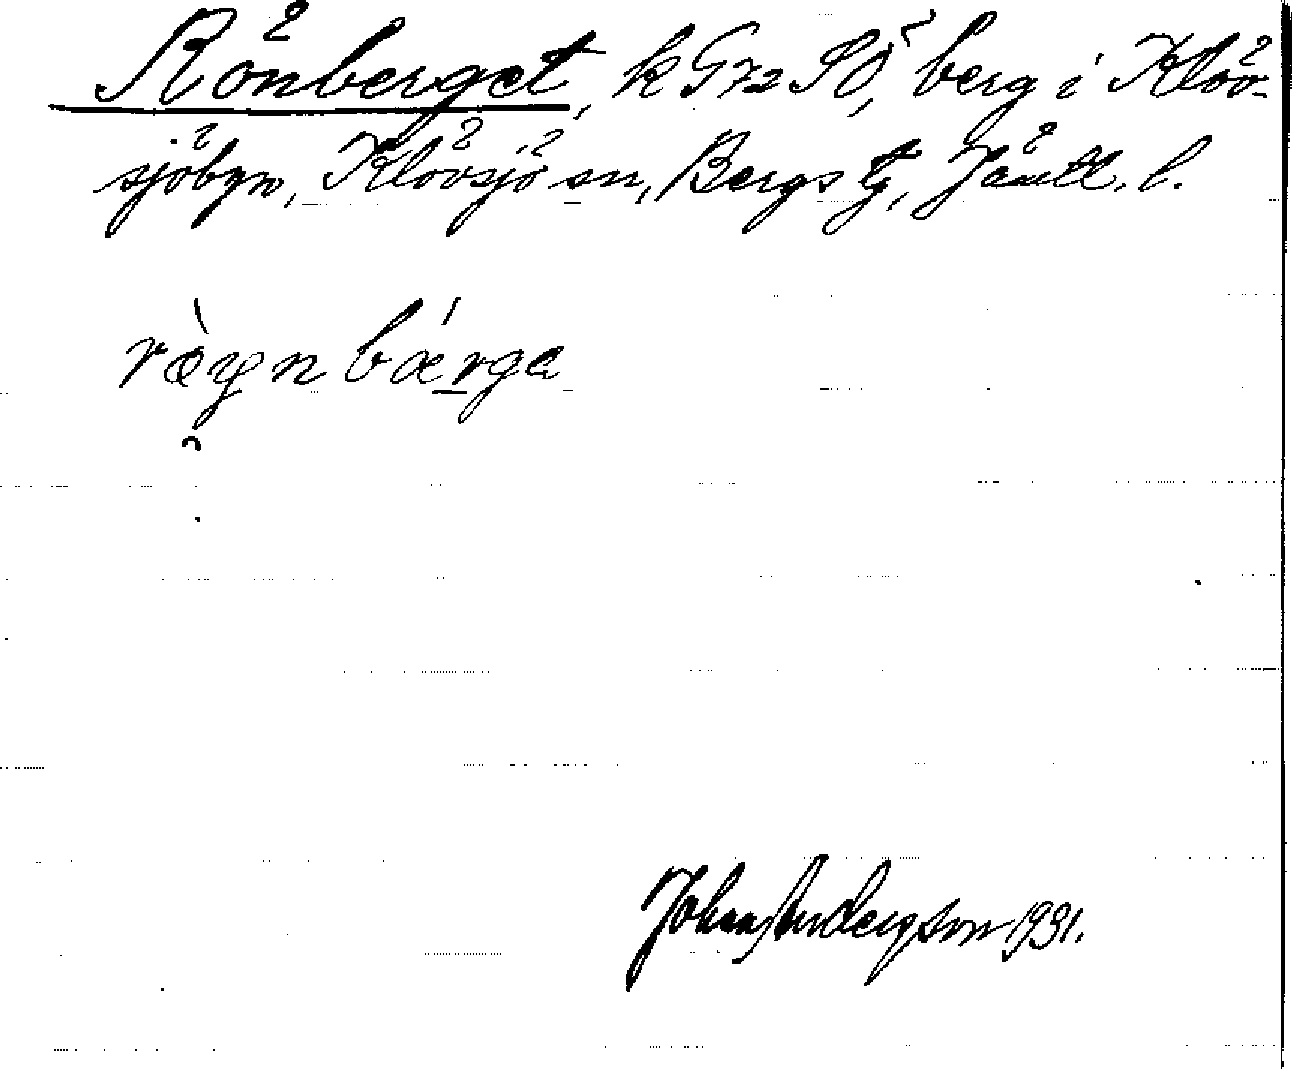 Rönberget, k G72 SÖ, berg i Klöv-
sjöbyn, Klövsjö sn, Bergs tg, Jämtl. l.
bárga
Johan Andersson 1931.